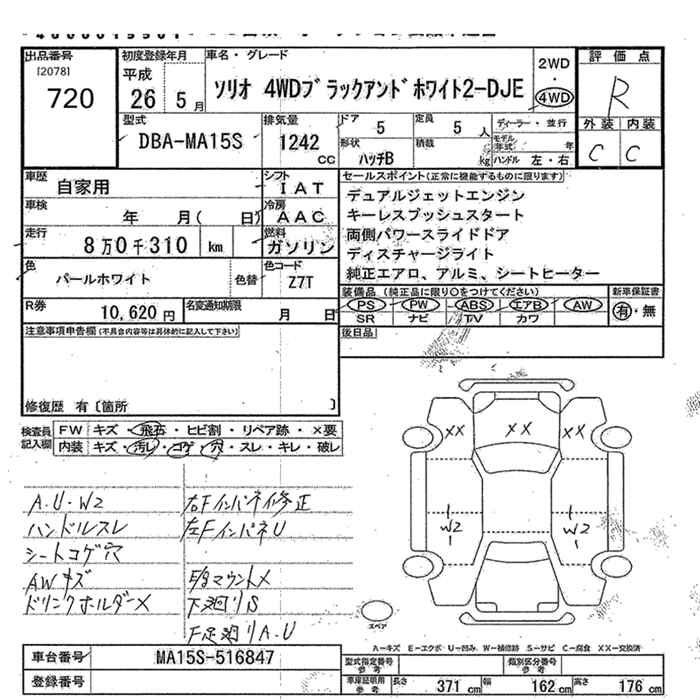 出品番号
[2078]
720
初度登録年月
平成
26 5月
車名・グレード
ソリオ 4WDブラックアンドホワイト2-DJE
2WD
・
4WD
評価点
R
外装 内装
C C
型式
DBA-MA15S
排気量
1242
cc
ドア 5
定員 5 人
形状 ハッチB
積載 kg
ディーラー・並行
モデル年式 年
ハンドル 左・右
車歴
自家用
シフト
IAT
車検
年 月( 日)
冷房
AAC
走行
8万0千310 km
燃料
ガソリン
色
パールホワイト
色替
色コード
Z7T
R券
10,620円
名変通知期限
月 日
セールスポイント(正常に機能するものに限ります)
デュアルジェットエンジン
キーレスプッシュスタート
両側パワースライドドア
ディスチャージライト
純正エアロ、アルミ、シートヒーター
装備品(純正品に限り○をつけてください)
PS PW ABS エアB AW
SR ナビ TV カワ
新車保証書
有・無
後日品
注意事項申告欄(不具合内容等は具体的に記入して下さい)
修復歴 有〔箇所 〕
検査員記入欄
FW キズ・飛石・ヒビ割・リペア跡・×要
内装 キズ・汚レ・コゲ・穴・スレ・キレ・破レ
A.U・W2
ハンドルスレ
シートコゲ穴
AWキズ
ドリンクホルダー×
右Fインパネ修正
左FインパネU
マウント×
下廻りS
F足廻りA.U
XX XX XX
W2 W2
スペア
A-キズ E-エクボ U-凹み W-補修跡 S-サビ C-腐食 XX-交換済
車台番号
MA15S-516847
登録番号
型式指定番号 参考
類別区分番号 参考
車庫証明用 参考
長さ 371 cm
幅 162 cm
高さ 176 cm